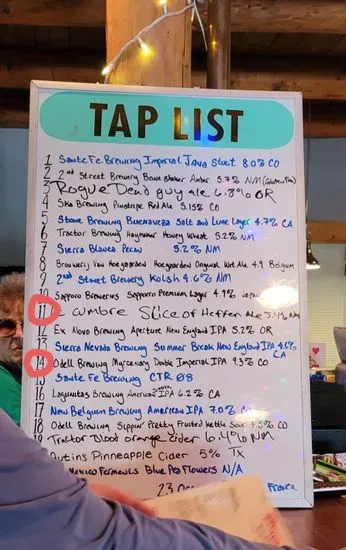 TAP LIST
1 Santa Fe Brewing Imperial Java Stout 8.0% CO
2 2nd Street Brewery Bone Shaker Amber 5.7% NM (Gluten Free)
3 Rogue Dead guy ale 6.8% OR
4 Ska Brewing Pinstripe Red Ale 5.15% CO
5 Stone Brewing Buenaveza Salt and Lime Lager 4.7% CA
6 Tractor Brewing Haymaker Honey Wheat 5.2% NM
7 Sierra Blanca Pecan 5.2% NM
8 Brouwerij Van Hoegaarden Hoegaarden Original Wit Ale 4.9 Belgium
9 2nd Street Brewery Kolsh 4.6% NM
10 Sapporo Breweries Sapporo Premium Lager 4.9%
11 Cumbre Slice of Heffen Ale 5.4% NM
12 Ex Novo Brewing Aperture New England IPA 5.2% OR
13 Sierra Nevada Brewing Summer Break New England IPA 4.6% CA
14 Odell Brewing Myrcenary Double Imperial IPA 9.3% CO
15 Santa Fe Brewing CTR 08
16 Lagunitas Brewing American IPA 6.2% CA
17 New Belgium Brewing American IPA 7.0%
18 Odell Brewing Sippin' Pretty Fruited Kettle Sour 4.5% CO
19 Tractor Blood orange cider 6.4% NM
Austins Pinneapple Cider 5% TX
Mexico Ferments Blue Pea Flowers N/A
France